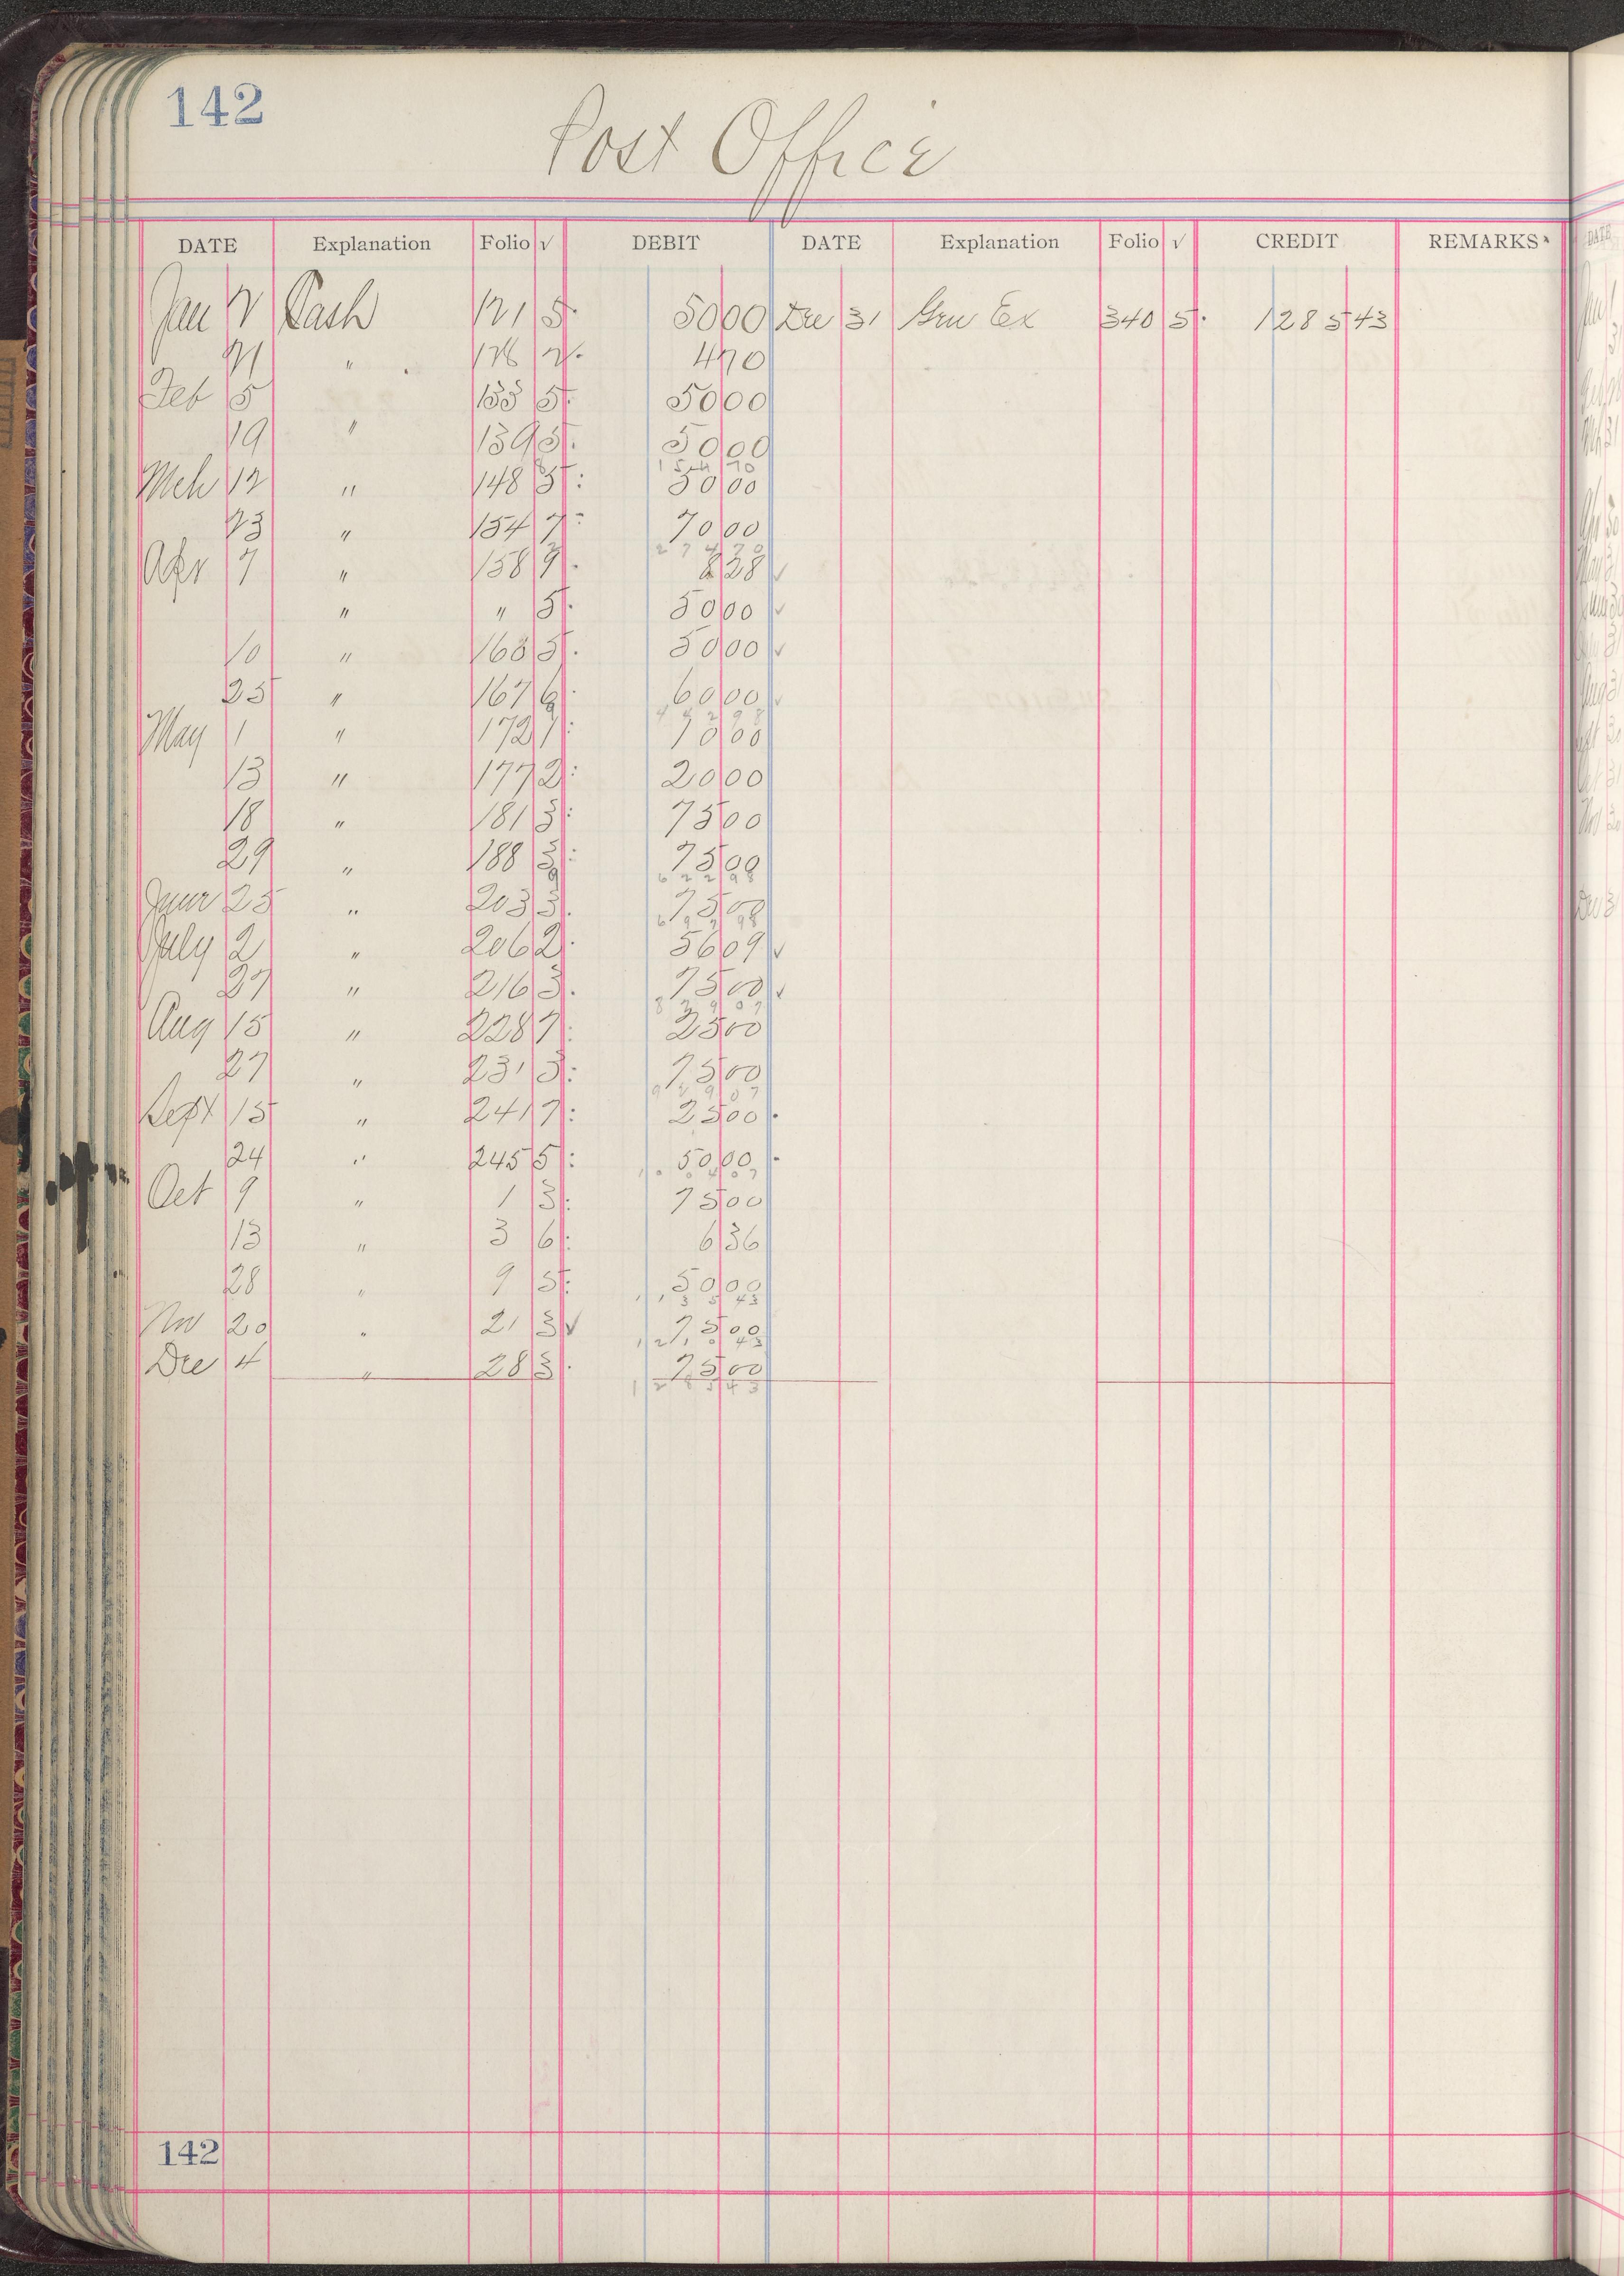 142
Post Office
DATE Explanation Folio √ DEBIT DATE Explanation Folio √ CREDIT REMARKS
Jan 2 Cash 121 5 5000 Dec 31 Gen Ex 340 5 128543
21 " 126 2 470
Feb 5 133 5 5000
19 " 139 5 5000
15470
Mch 12 " 148 5 5000
23 " 154 7 7000
27470
Apr 7 " 158 9 828 ✓
" " 5 5000 ✓
10 " 163 5 5000 ✓
25 " 167 6 6000 ✓
44298
May 1 " 172 1 1000
13 " 177 2 2000
18 " 181 3 7500
29 " 188 3 7500
62298
June 25 " 203 3 7500
69798
July 2 " 206 2 5609 ✓
27 " 216 3 7500 ✓
82907
Aug 15 " 228 7 2500
27 " 231 3 7500
92907
Sept 15 " 241 7 2500
24 " 245 5 5000
100407
Oct 9 " 1 3 7500
13 " 3 6 636
28 " 9 5 5000
113543
Nov 20 " 21 3 ✓ 7500
121043
Dec 4 " 28 3 7500
128543
142